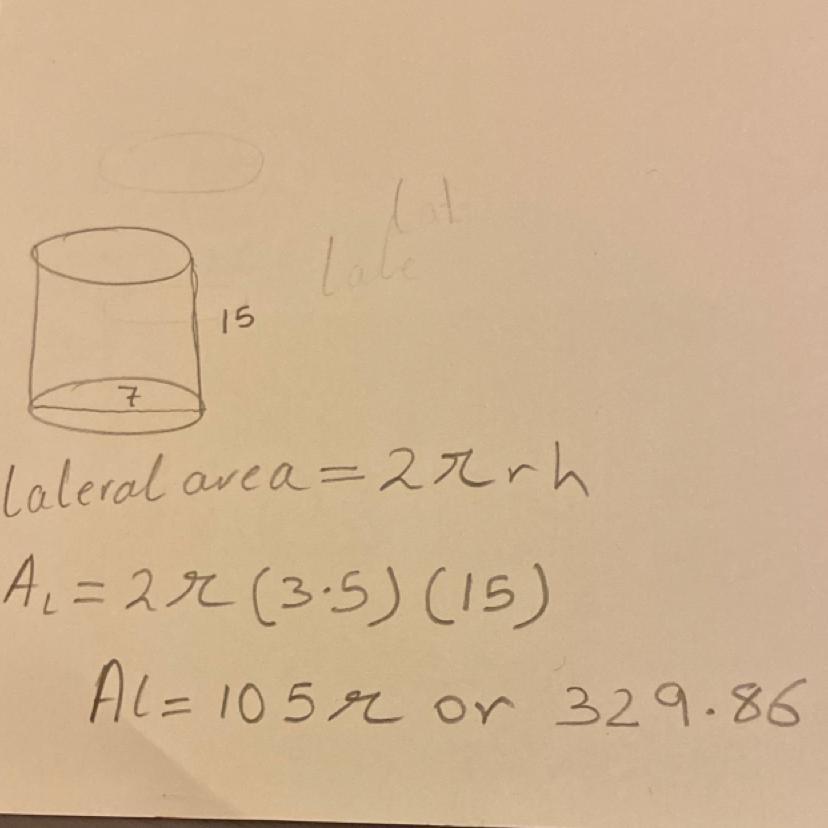 lat
Late
15
7
Lateral area = 2πrh
A_L = 2π(3.5)(15)
Al = 105π or 329.86